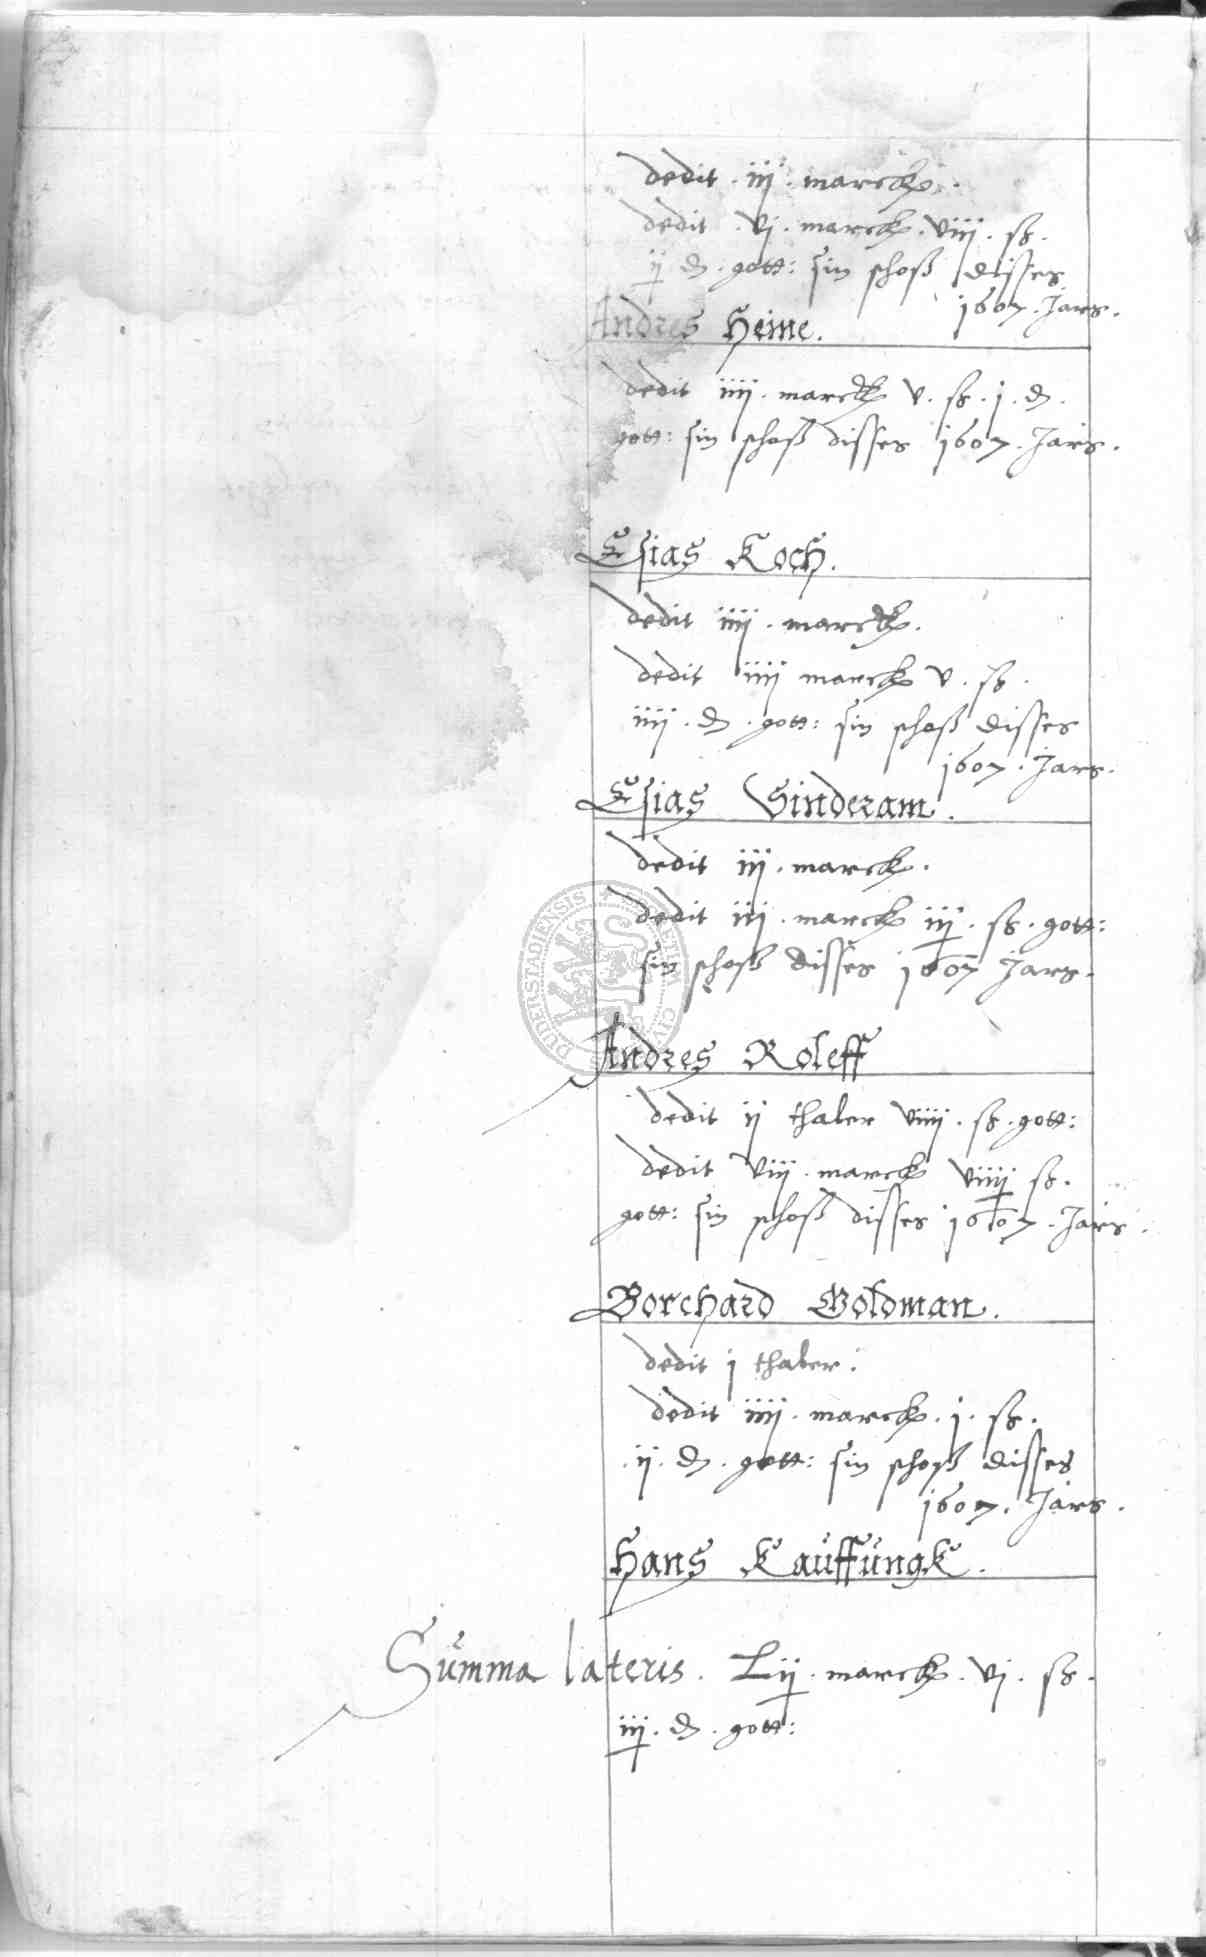 dedit . iij . marck .
dedit . vj . marck . viij . ß .
ij d . gott: sin schoß disses
1607 . Jars .
Andres Heine .
dedit iiij . marck v . ß . j . d .
gott: sin schoß disses 1607 . Jars .
Esias Koch .
dedit iiij . marck .
dedit iiij marck v . ß .
iiij . d . gott: sin schoß disses
1607 . Jars .
Esias Sinderam .
dedit iij . marck .
dedit iij . marck iij . ß . gott:
sin schoß disses 1607 Jars .
Andres Roleff
dedit ij thaler viiij . ß . gott:
dedit viij . marck viiij ß .
gott: sin schoß disses 1607 . Jars .
Borchard Goldman .
dedit j thaler .
dedit iiij . marck . j . ß .
. ij . d . gott: sin schoß disses
1607 . Jars .
Hans Kauffungk .
Summa lateris . Lij . marck . vj . ß .
iij . d . gott:
DUDERSTADIENSIS CIVITATIS